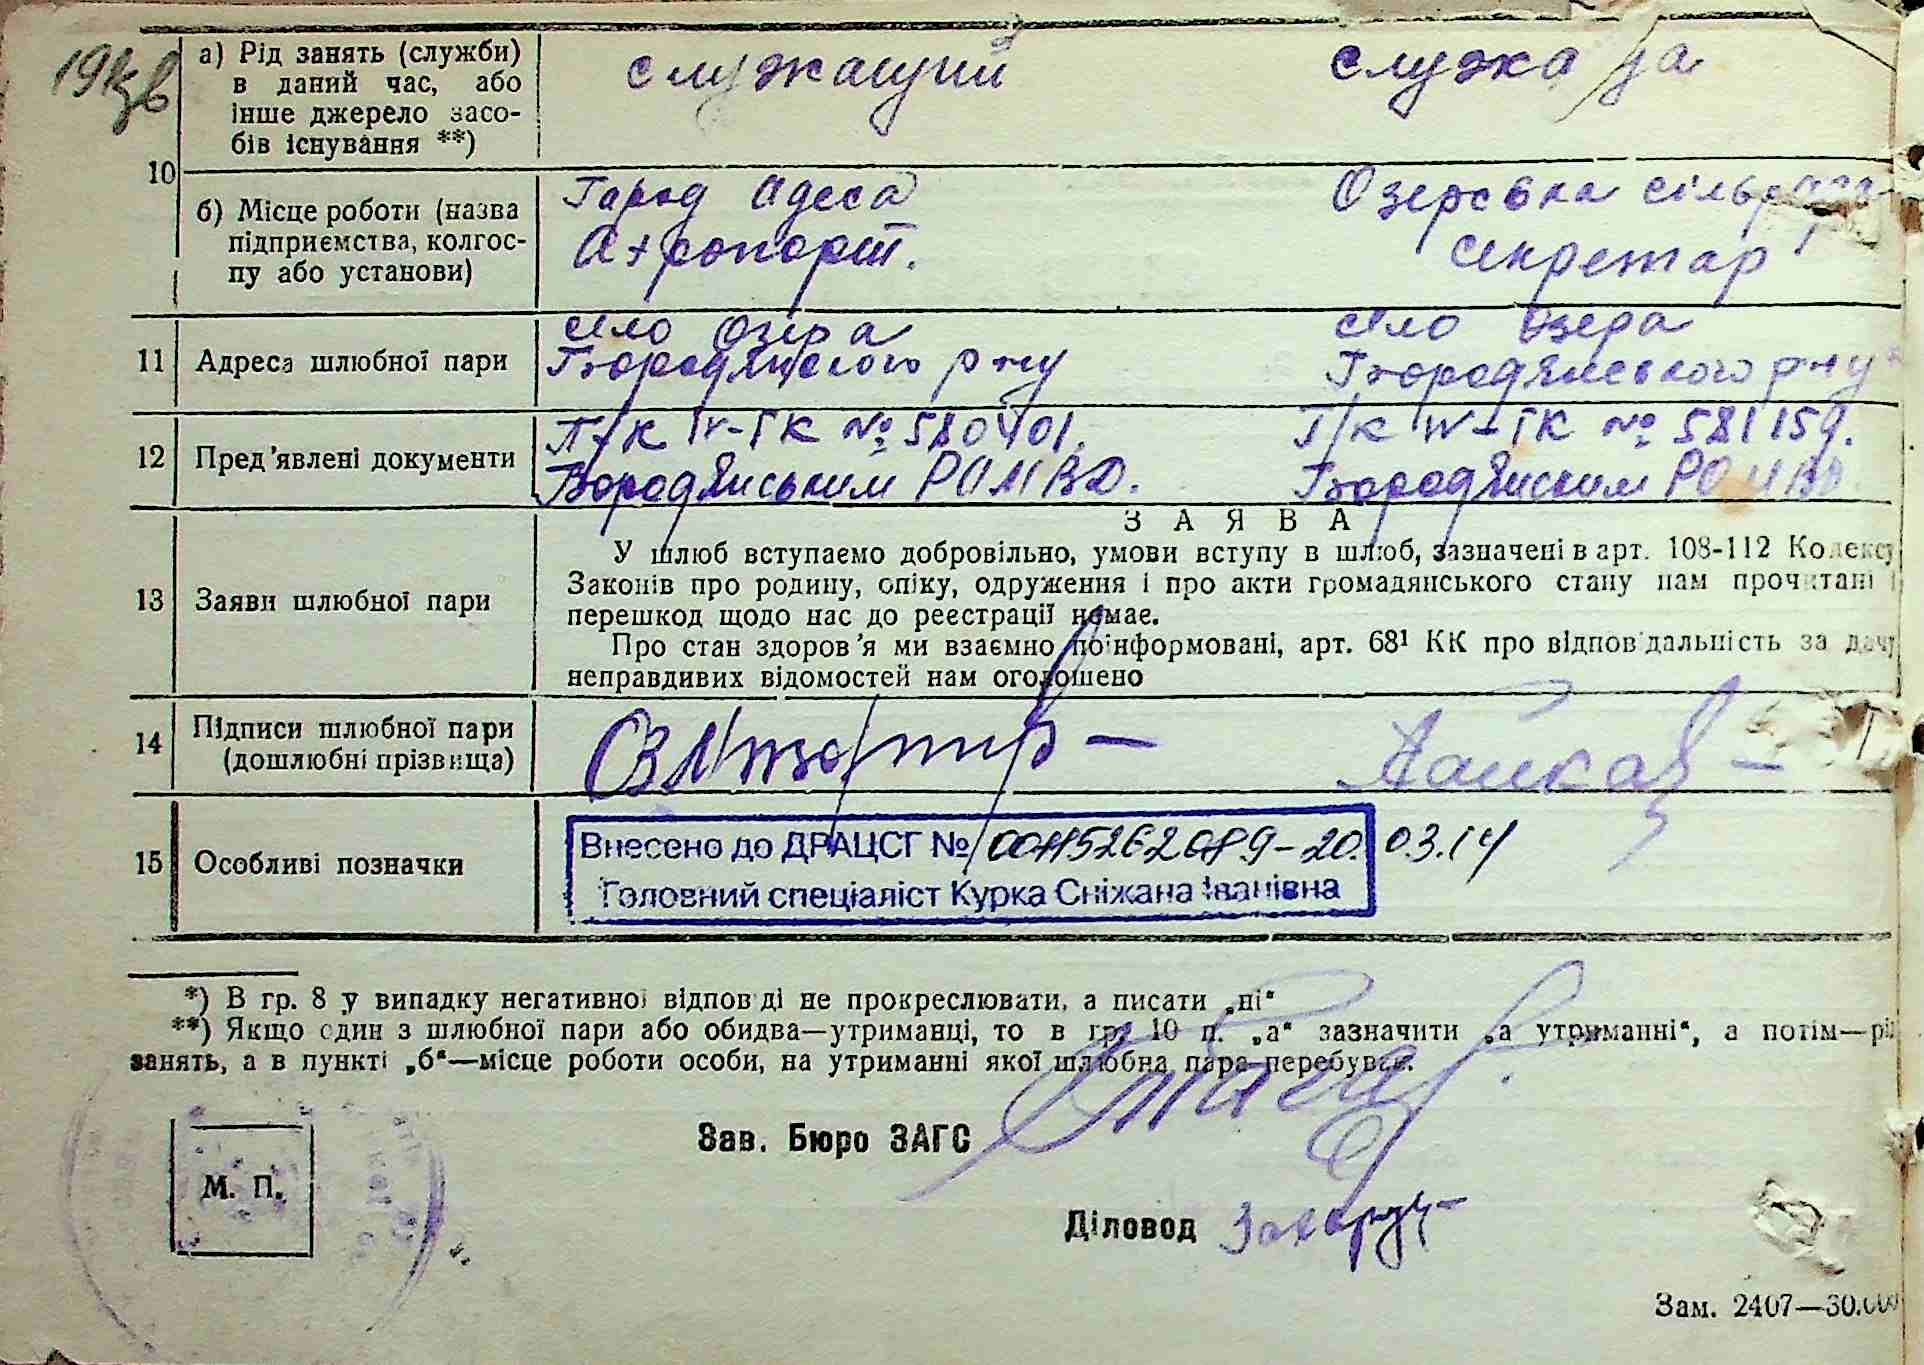 а) Рід занять (служби)
в даний час, або
інше джерело засо-
бів існування **)
служащий служаща
10
б) Місце роботи (назва
підприємства, колгос-
пу або установи)
Город Одеса Озерська сільрада
Аэропорт. секретар
11 Адреса шлюбної пари
село Озера село Озера
Бородянского р-ну Бородянського р-ну
12 Пред'явлені документи
П/к IV-ГК № 580401. П/к IV-ГК № 581159.
Бородянським РОМВД. Бородянским РОМВД
13 Заяви шлюбної пари
ЗАЯВА
У шлюб вступаємо добровільно, умови вступу в шлюб, зазначені в арт. 108-112 Кодексу
Законів про родину, опіку, одруження і про акти громадянського стану нам прочитані і
перешкод щодо нас до реєстрації немає.
Про стан здоров'я ми взаємно поінформовані, арт. 68¹ КК про відповідальність за дачу
неправдивих відомостей нам оголошено
14 Підписи шлюбної пари
(дошлюбні прізвища)
15 Особливі позначки
Внесено до ДРАЦСГ № 00115262089-20.03.14
Головний спеціаліст Курка Сніжана Іванівна
*) В гр. 8 у випадку негативної відповіді не прокреслювати, а писати „ні“
**) Якщо один з шлюбної пари або обидва—утриманці, то в гр. 10 п. „а“ зазначити „а утриманні“, а потім—рід
занять, а в пункті „б“—місце роботи особи, на утриманні якої шлюбна пара перебуває.
Зав. Бюро ЗАГС
М. П.
Діловод
Зам. 2407—30.000